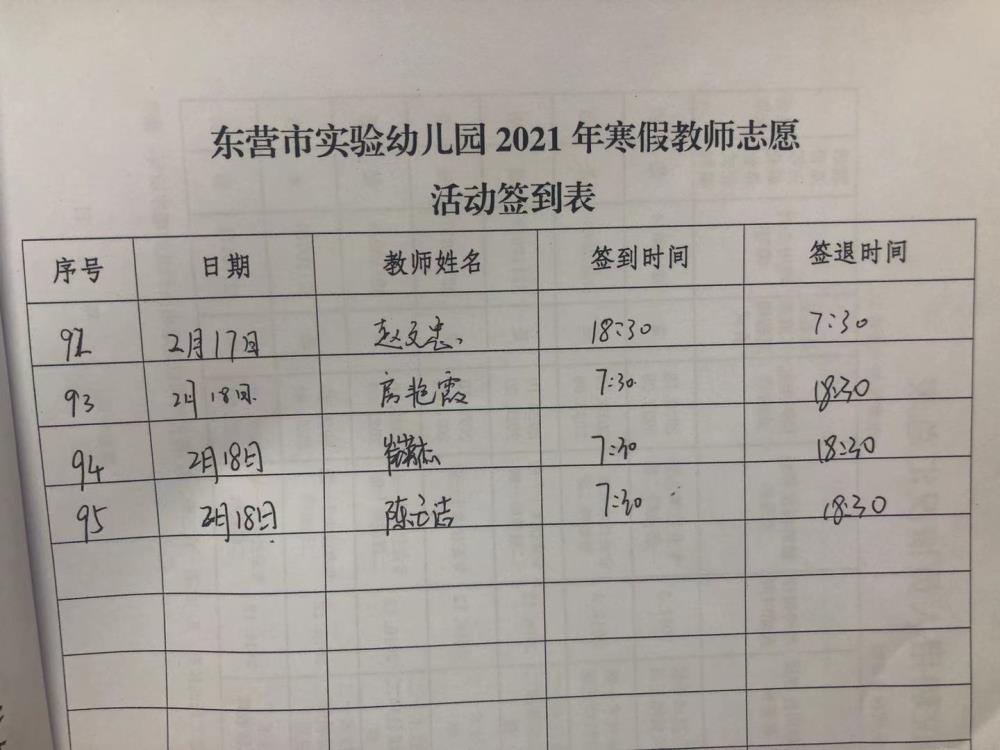 东营市实验幼儿园 2021 年寒假教师志愿
活动签到表
序号 日期 教师姓名 签到时间 签退时间
92 2月17日 赵文忠 18:30 7:30
93 2月18日 房艳霞 7:30 18:30
94 2月18日 7:30 18:30
95 2月18日 陈立洁 7:30 18:30